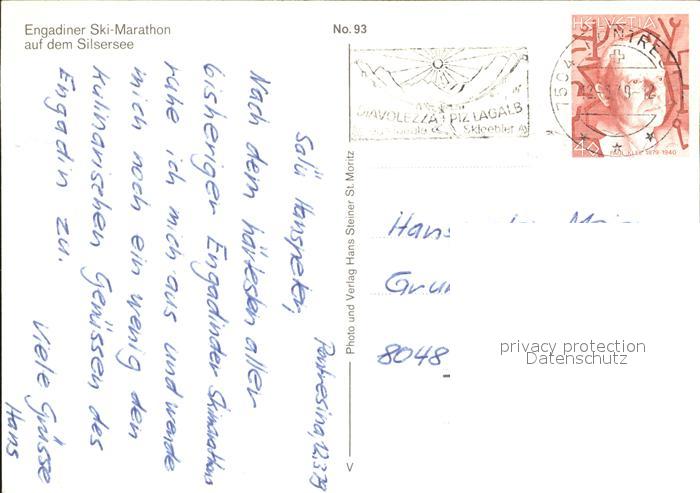 Engadiner Ski-Marathon
auf dem Silsersee
No. 93
HELVETIA
40
PAUL KLEE 1879-1940
7504 PONTRESINA
12.3.79-12
DIAVOLEZZA PIZ LAGALB
Photo und Verlag Hans Steiner St. Moritz
V
Pontresina, 12.3.79
Salü Hanspeter,
Nach dem härtesten aller
bisheriger Engadinder Skimarathons
ruhe ich mich aus und wende
mich noch ein wenig den
kulinarischen Genüssen des
Engadin zu.
Viele Grüsse
Hans
Hans
8048
privacy protection
Datenschutz